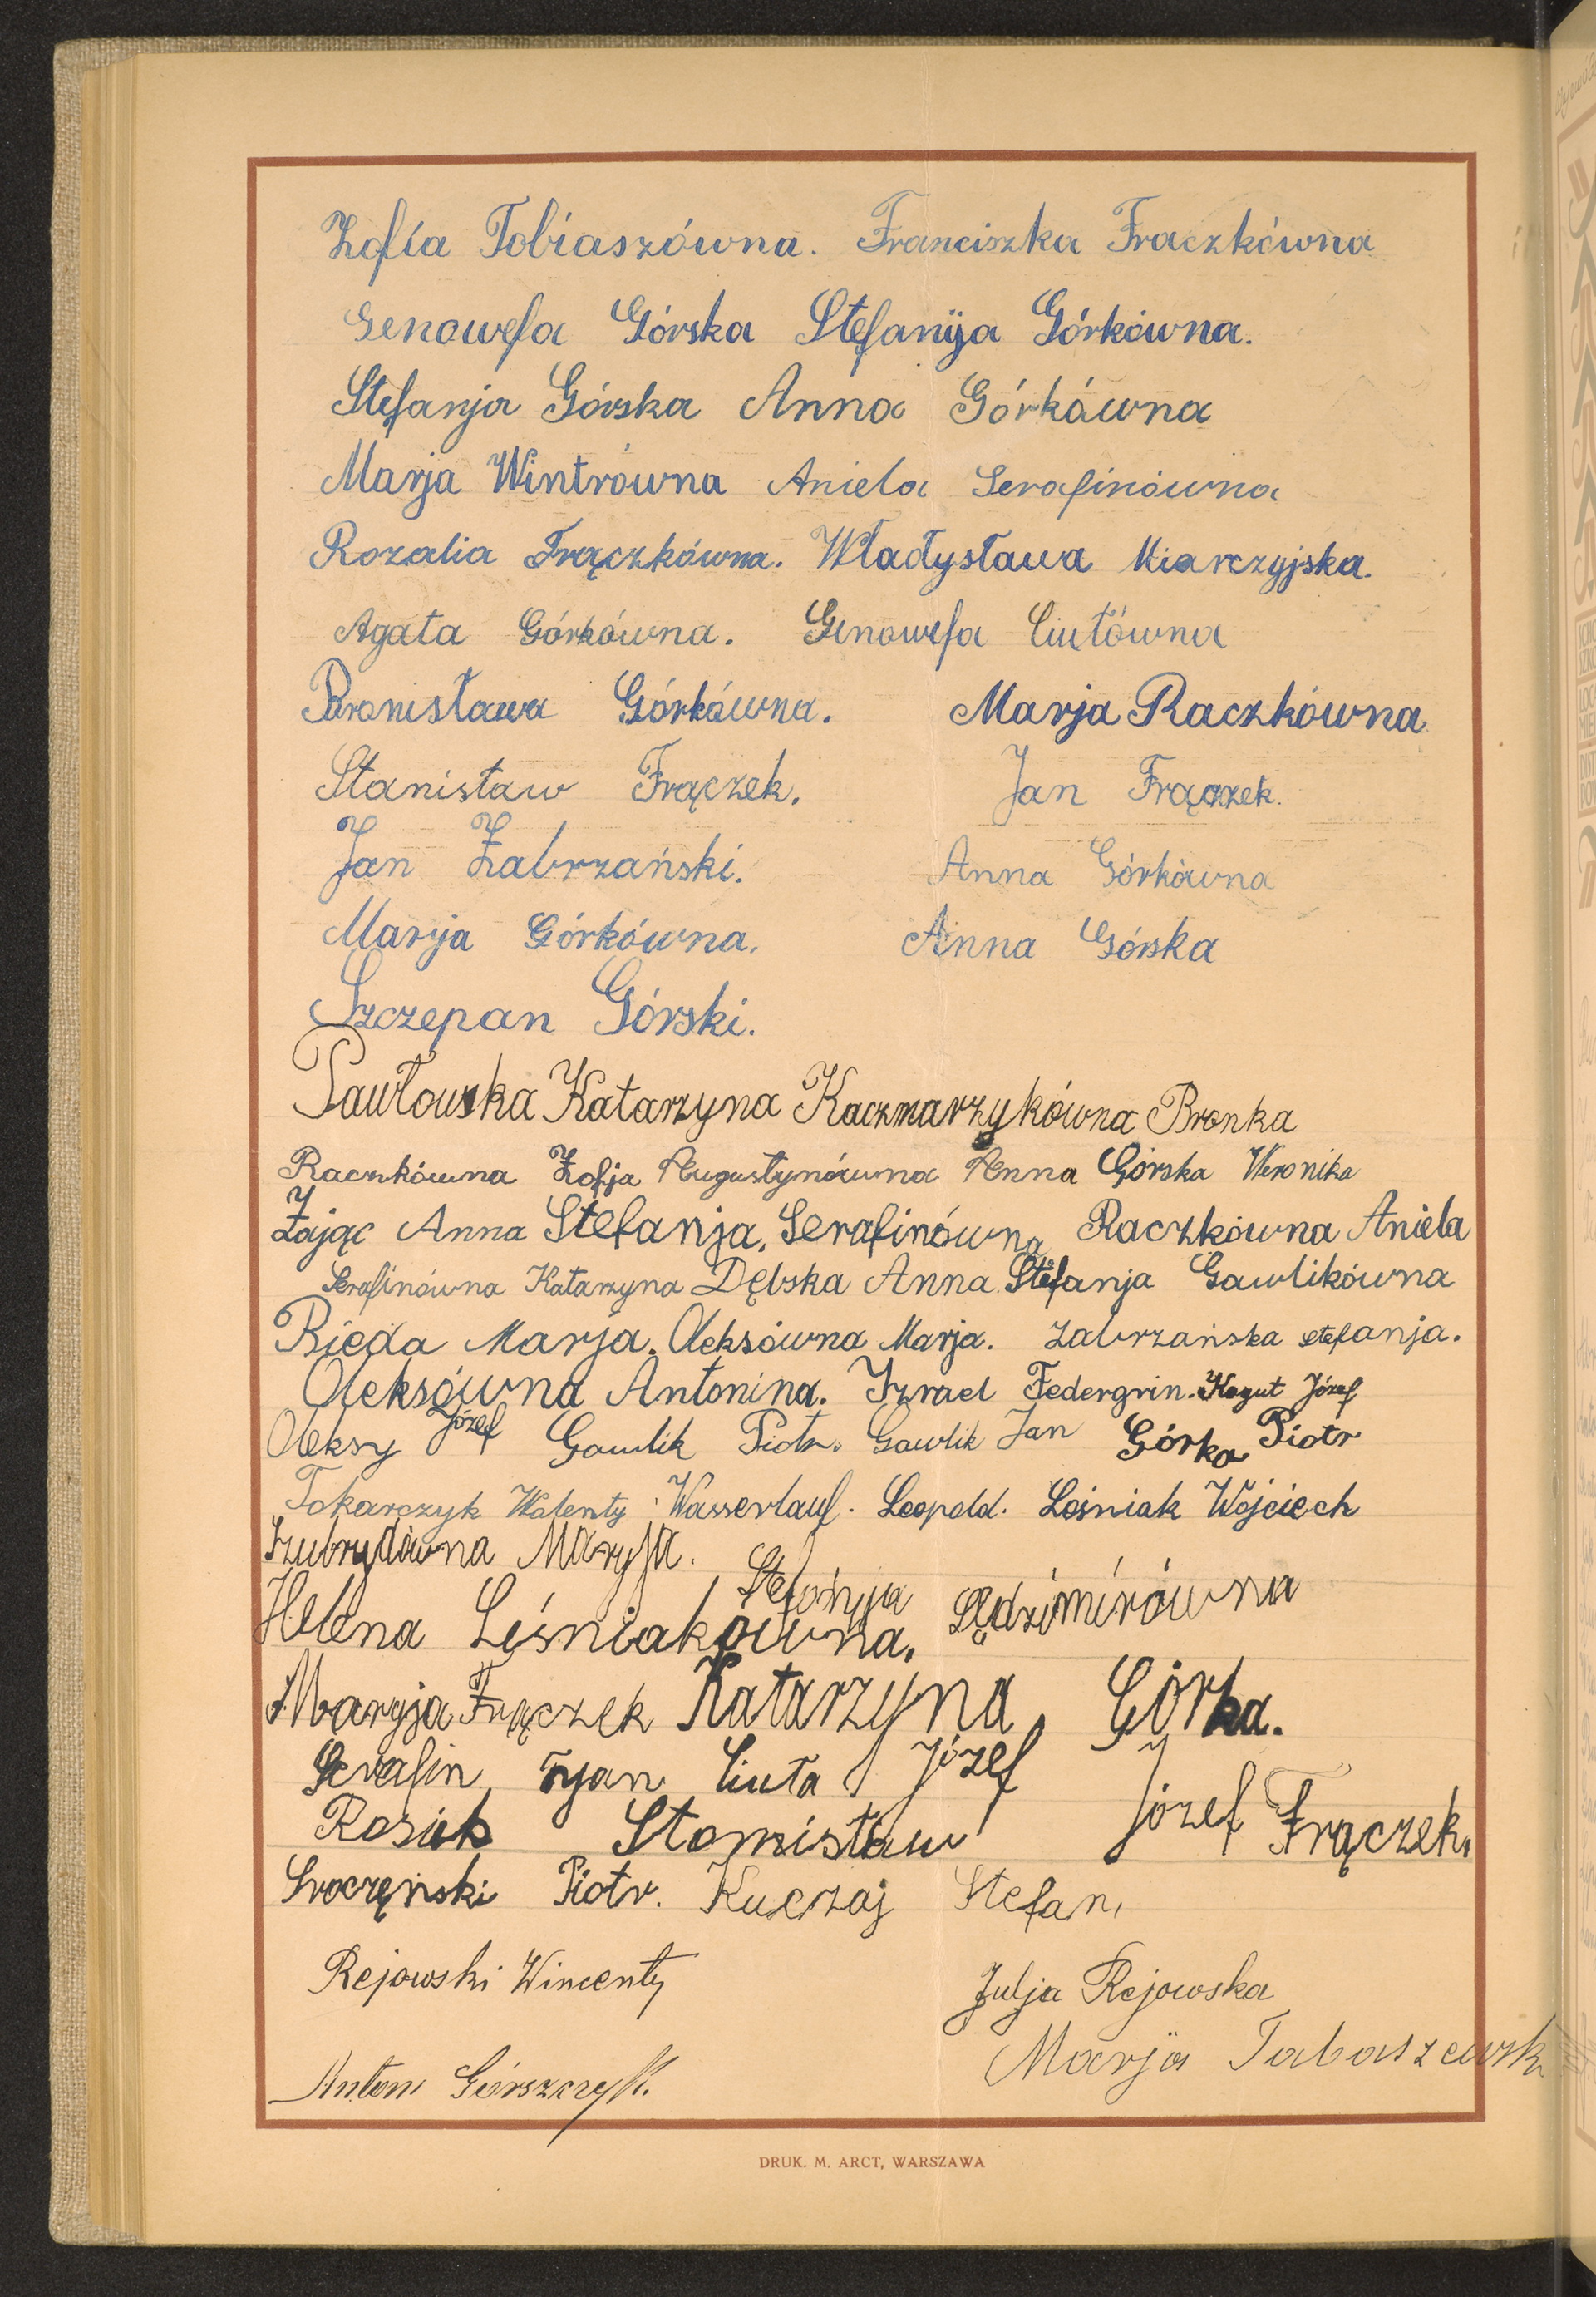 Zofia Tobiaszówna. Franciszka Fraczkówna
Genowefa Górska Stefanija Górkówna.
Stefanja Górska Anna Górkówna
Marja Wintrówna Aniela Serafinówna
Rozalia Frączkówna. Władysława Miarczyjska.
Agata Górkówna. Genowefa Ciutówna
Bronisława Górkówna. Marja Raczkówna
Stanisław Frączek. Jan Frączek.
Jan Zabrzański. Anna Górkówna
Maryja Górkówna. Anna Górska
Szczepan Górski.
Pawłowska Katarzyna Kaczmarzykówna Bronka
Raczkówna Zofja Augustynówna Anna Górska Weronika
Zając Anna Stefanja, Serafinówna Raczkówna Aniela
Serafinówna Katarzyna Dębska Anna Stefanja Gawlikówna
Bieda Marja. Oleksówna Marja. Zabrzańska stefanja.
Oleksówna Antonina. Izrael Federgrin. Kogut Józef
Oleksy Józef Gawlik Piotr. Gawlik Jan Górka Piotr
Tokarczyk Walenty Wasserlauf. Leopold. Leśniak Wojciech
Szubrydówna Maryja.
Helena Leśniakówna, Stefanija Sędzimirówna
Maryja Frączek Katarzyna Górka.
Serafin Jan Ciuta Józef
Rosiek Stanisław Józef Frączek,
Sroczyński Piotr. Kuczaj Stefan,
Rejowski Wincenty Julja Rejowska
Marja
Antoni
DRUK. M. ARCT, WARSZAWA